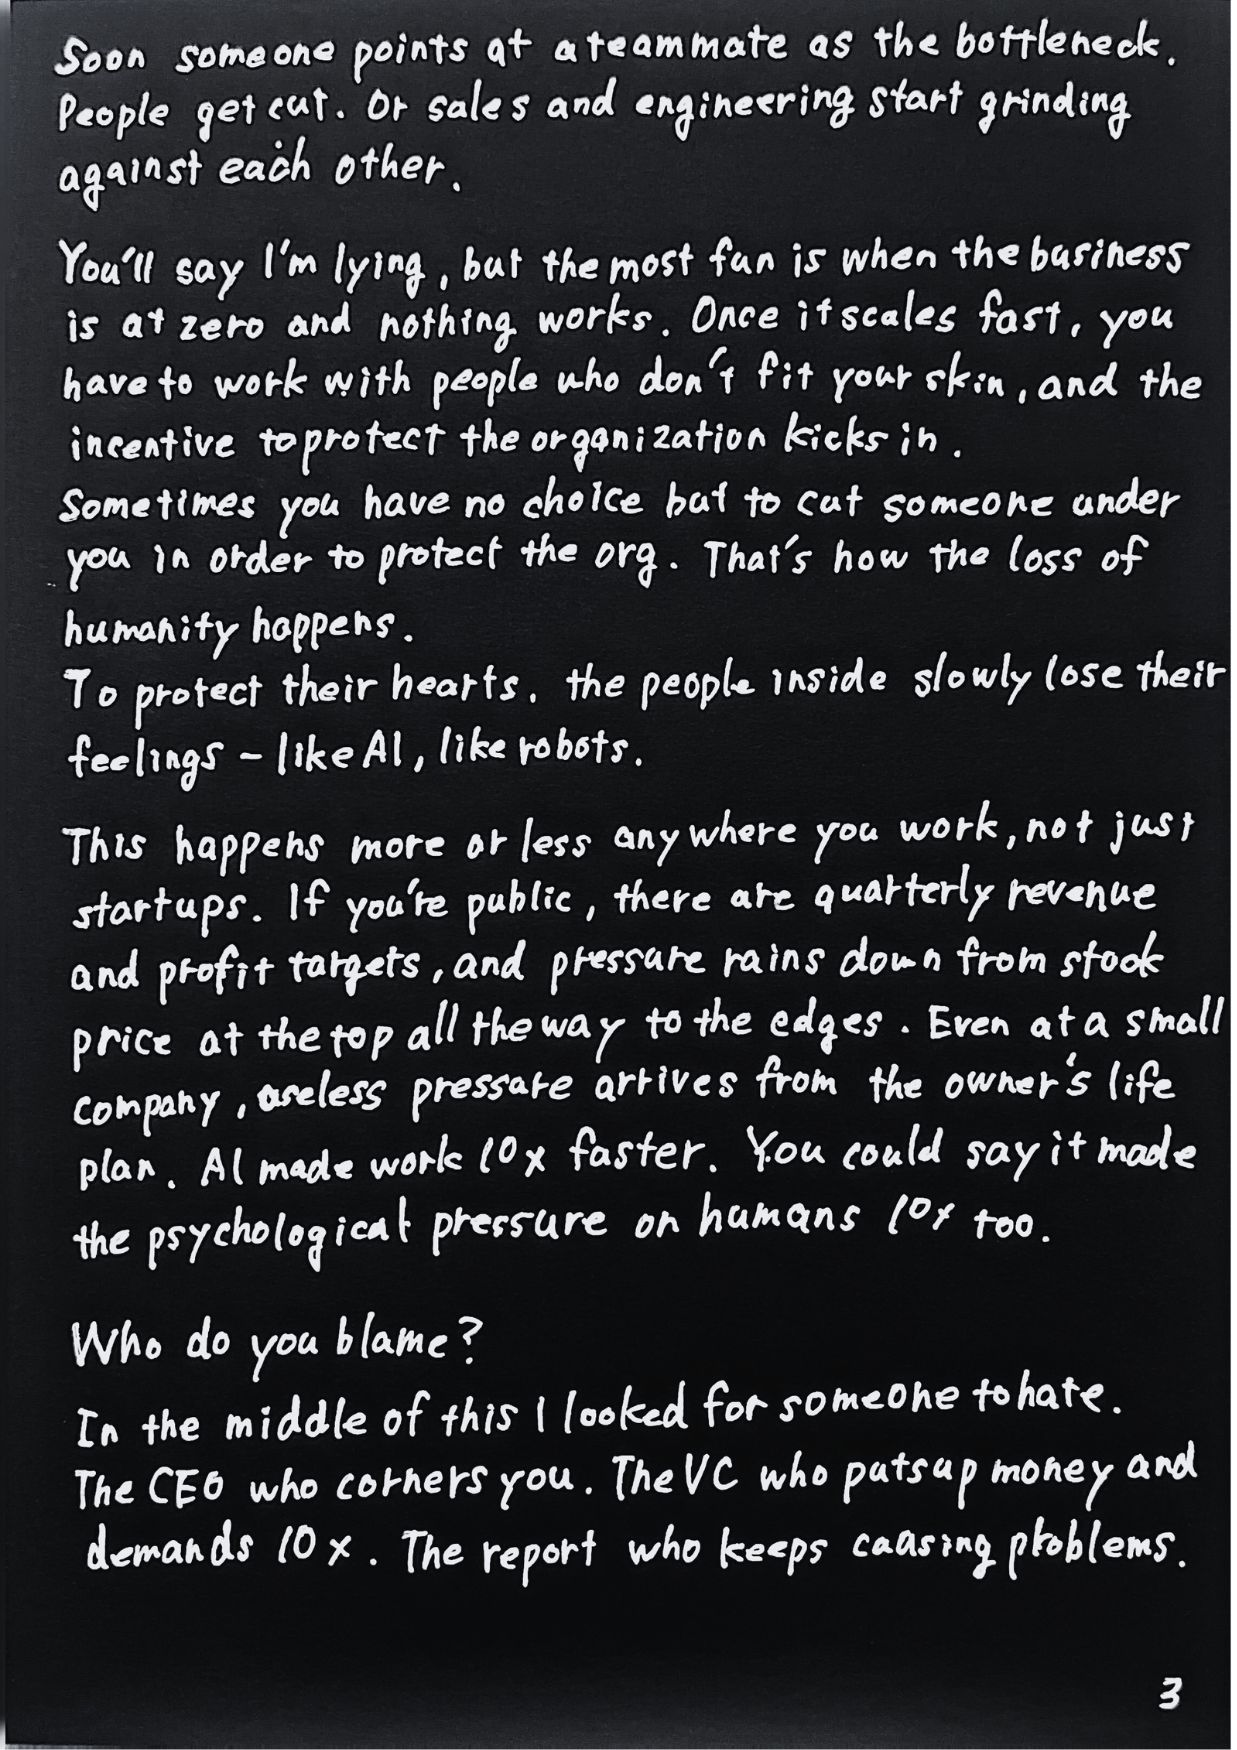 Soon someone points at a teammate as the bottleneck.
People get cut. Or sales and engineering start grinding
against each other.
You'll say I'm lying, but the most fun is when the business
is at zero and nothing works. Once it scales fast, you
have to work with people who don't fit your skin, and the
incentive to protect the organization kicks in.
Sometimes you have no choice but to cut someone under
you in order to protect the org. That's how the loss of
humanity happens.
To protect their hearts. the people inside slowly lose their
feelings – like AI, like robots.
This happens more or less anywhere you work, not just
startups. If you're public, there are quarterly revenue
and profit targets, and pressure rains down from stock
price at the top all the way to the edges. Even at a small
company, useless pressure arrives from the owner's life
plan. AI made work 10x faster. You could say it made
the psychological pressure on humans 10x too.
Who do you blame?
In the middle of this I looked for someone to hate.
The CEO who corners you. The VC who puts up money and
demands 10x. The report who keeps causing problems.
3